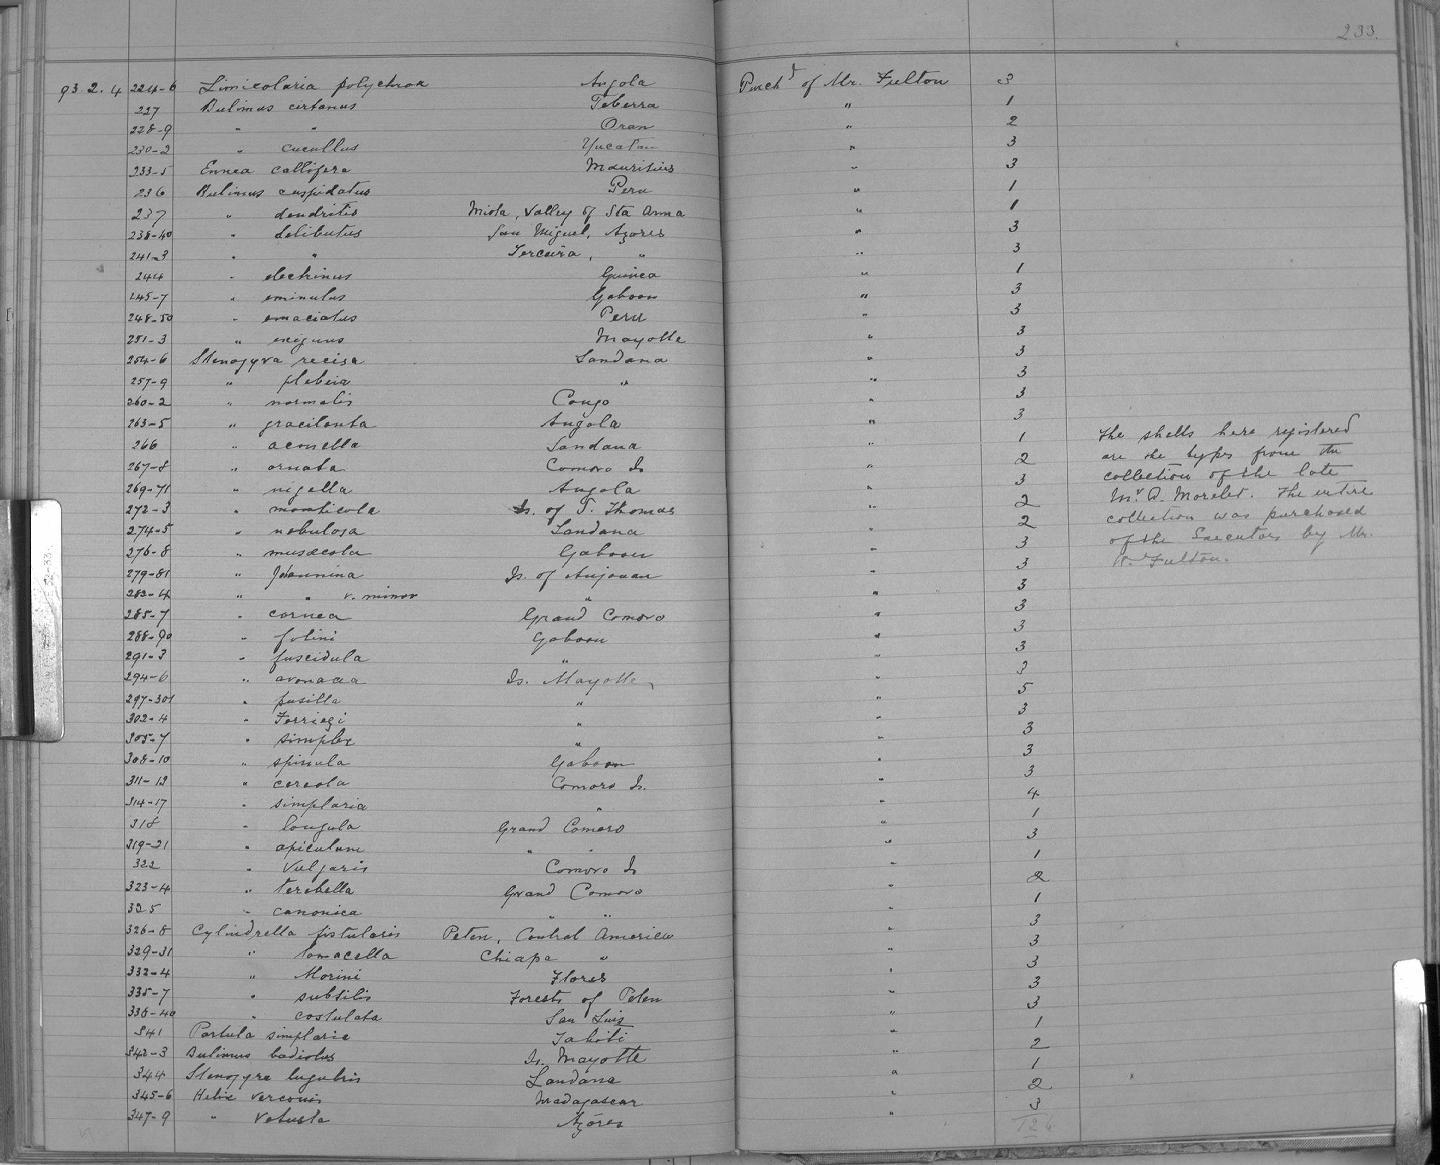 233.
93.2.4 224-6 Limicolaria polychroa Angola Purchd of Mr. Fulton 3
227 Bulimus cirtanus Teberra " 1
228-9 " " Oran " 2
230-2 " cucullus Yucatan " 3
233-5 Ennea callifera Mauritius " 3
236 Bulimus cuspidatus Peru " 1
237 " dendritis Miola, Valley of Sta Anna " 1
238-40 " delibutus San Miguel, Açores " 3
241-3 " " Terceira, " " 3
244 " electrinus Guinea " 1
245-7 " eminulus Gaboon " 3
248-50 " emaciatus Peru " 3
251-3 " exiguus Mayotte " 3
254-6 Stenogyra recisa Landana " 3
257-9 " plebeia " " 3
260-2 " normalis Congo " 3
263-5 " gracilenta Angola " 3
266 " acmella Landana " 1
267-8 " ornata Comoro Is " 2
269-71 " nigella Angola " 3
272-3 " monticola Is. of S. Thomas " 2
274-5 " nebulosa Landana " 2
276-8 " musaecola Gaboon " 3
279-81 " Johannina Is. of Anjouan " 3
282-4 " " v. minor " " 3
285-7 " cornea Grand Comoro " 3
288-90 " folini Gaboon " 3
291-3 " fuscidula " " 3
294-6 " avenacea Is. Mayotte " 3
297-301 " pusilla " " 5
302-4 " Ferriezi " " 3
305-7 " simplex " " 3
308-10 " spinula Gaboon " 3
311-13 " cereola Comoro Is. " 3
314-17 " simplaria " " 4
318 " longula Grand Comoro " 1
319-21 " apiculum " " " 3
322 " Vulgaris Comoro Is " 1
323-4 " terebella Grand Comoro " 2
325 " canonica " " " 1
326-8 Cylindrella fistularis Peten, Central America " 3
329-31 " tomacella Chiapa " " 3
332-4 " Morini Flores " 3
335-7 " subtilis Forests of Peten " 3
338-40 " costulata San Luis " 3
341 Partula simplaria Tahiti " 1
342-3 Bulimus badiolus Is. Mayotte " 2
344 Stenogyra lugubris Landana " 1
345-6 Helix vercouis Madagascar " 2
347-9 " Vetusta Açores " 3
126
The shells here registered
are the types from the
collection of the late
Mr A. Morelet. The entire
collection was purchased
of the Executors by Mr.
Fulton.
52-33.